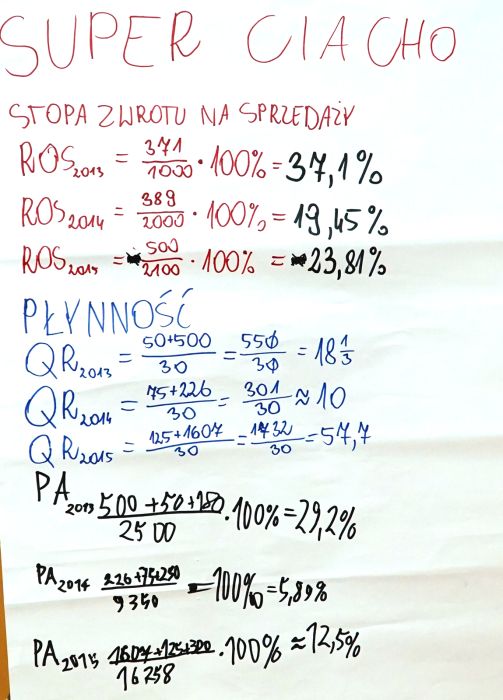 SUPER CIACHO
STOPA ZWROTU NA SPRZEDAŻY
ROS2013 = 371/1000 · 100% = 37,1%
ROS2014 = 389/2000 · 100% = 19,45%
ROS2015 = 500/2100 · 100% = 23,81%
PŁYNNOŚĆ
QR2013 = 50+500/30 = 550/30 = 18 1/3
QR2014 = 75+226/30 = 301/30 ≈ 10
QR2015 = 125+1607/30 = 1732/30 = 57,7
PA2013 500+50+180/2500 · 100% = 29,2%
PA2014 226+75+250/9350 100% = 5,89%
PA2015 1607+125+300/16258 · 100% ≈ 12,5%